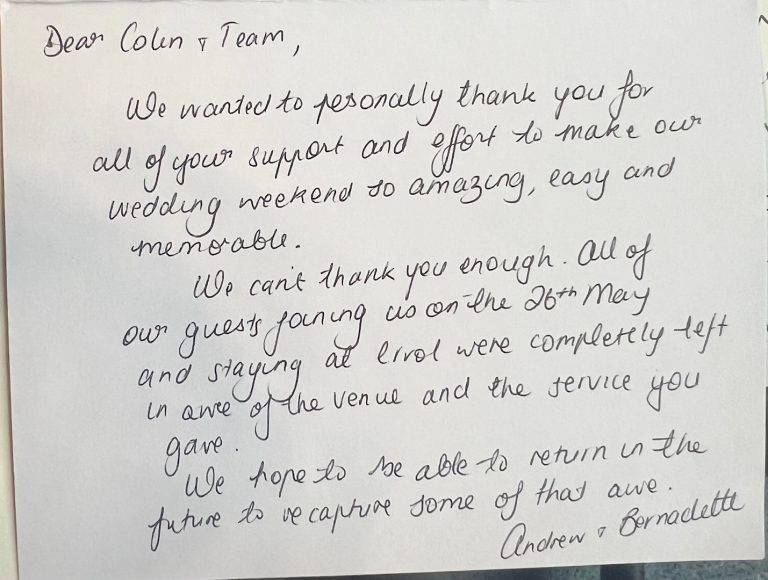 Dear Colin & Team,
We wanted to pesonally thank you for
all of your support and effort to make our
wedding weekend so amazing, easy and
memorable.
We can't thank you enough. All of
our guests joining us on the 26th May
and staying at Errol were completely left
in awe of the venue and the service you
gave.
We hope to be able to return in the
future to recapture some of that awe.
Andrew & Bernadette